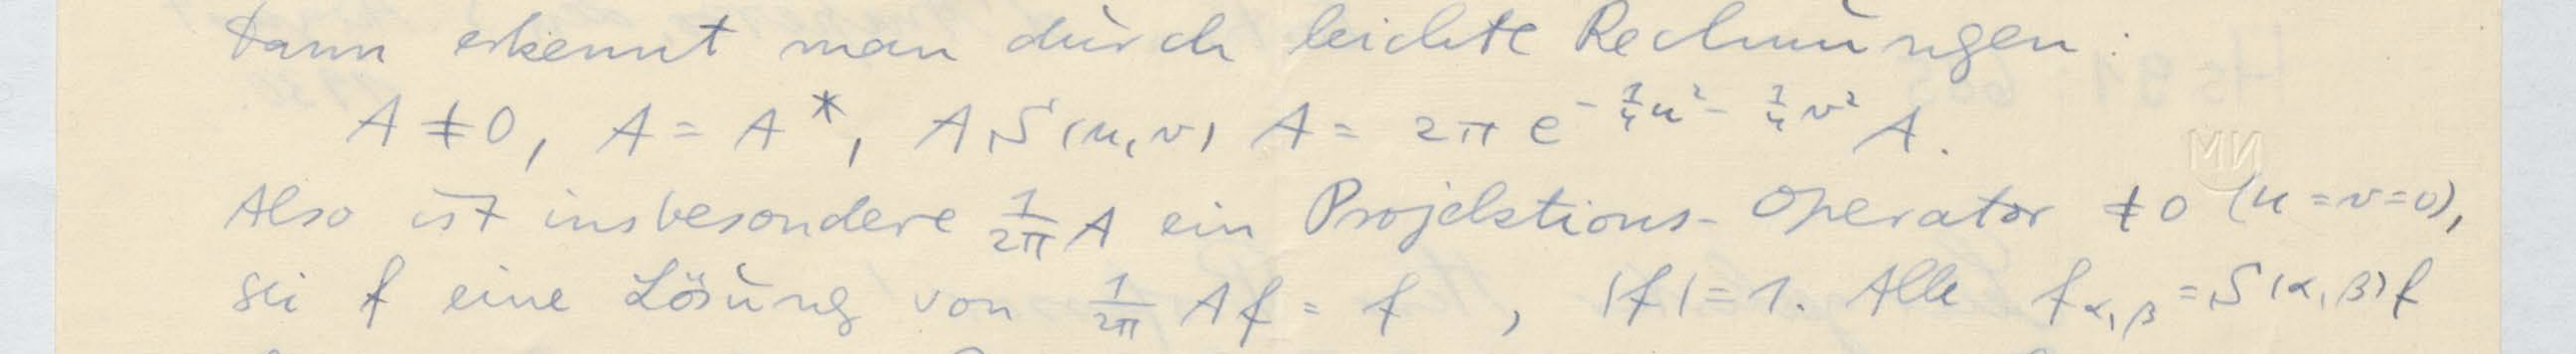 dann erkennt man durch leichte Rechnungen:
A ≠ 0, A = A*, A S(u, v) A = 2π e^{-1/4 u² - 1/4 v²} A.
Also ist insbesondere 1/2π A ein Projektions-Operator ≠ 0 (u = v = 0),
sei f eine Lösung von 1/2π A f = f, |f| = 1. Alle f_{α,β} = S(α, β) f